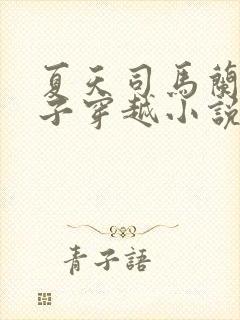 夏天司馬蘭
子穿越小說
青子語